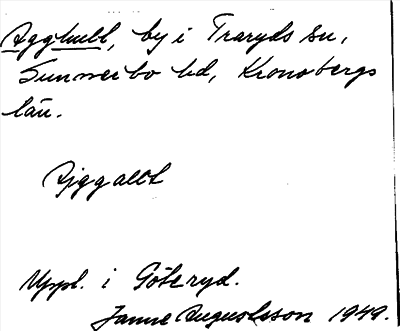 Agghult, by i Traryds sn,
Sunnerbo hd, Kronobergs
län.
Ajggallt
Uppl. i Göteryd.
Janne Augustsson 1949.